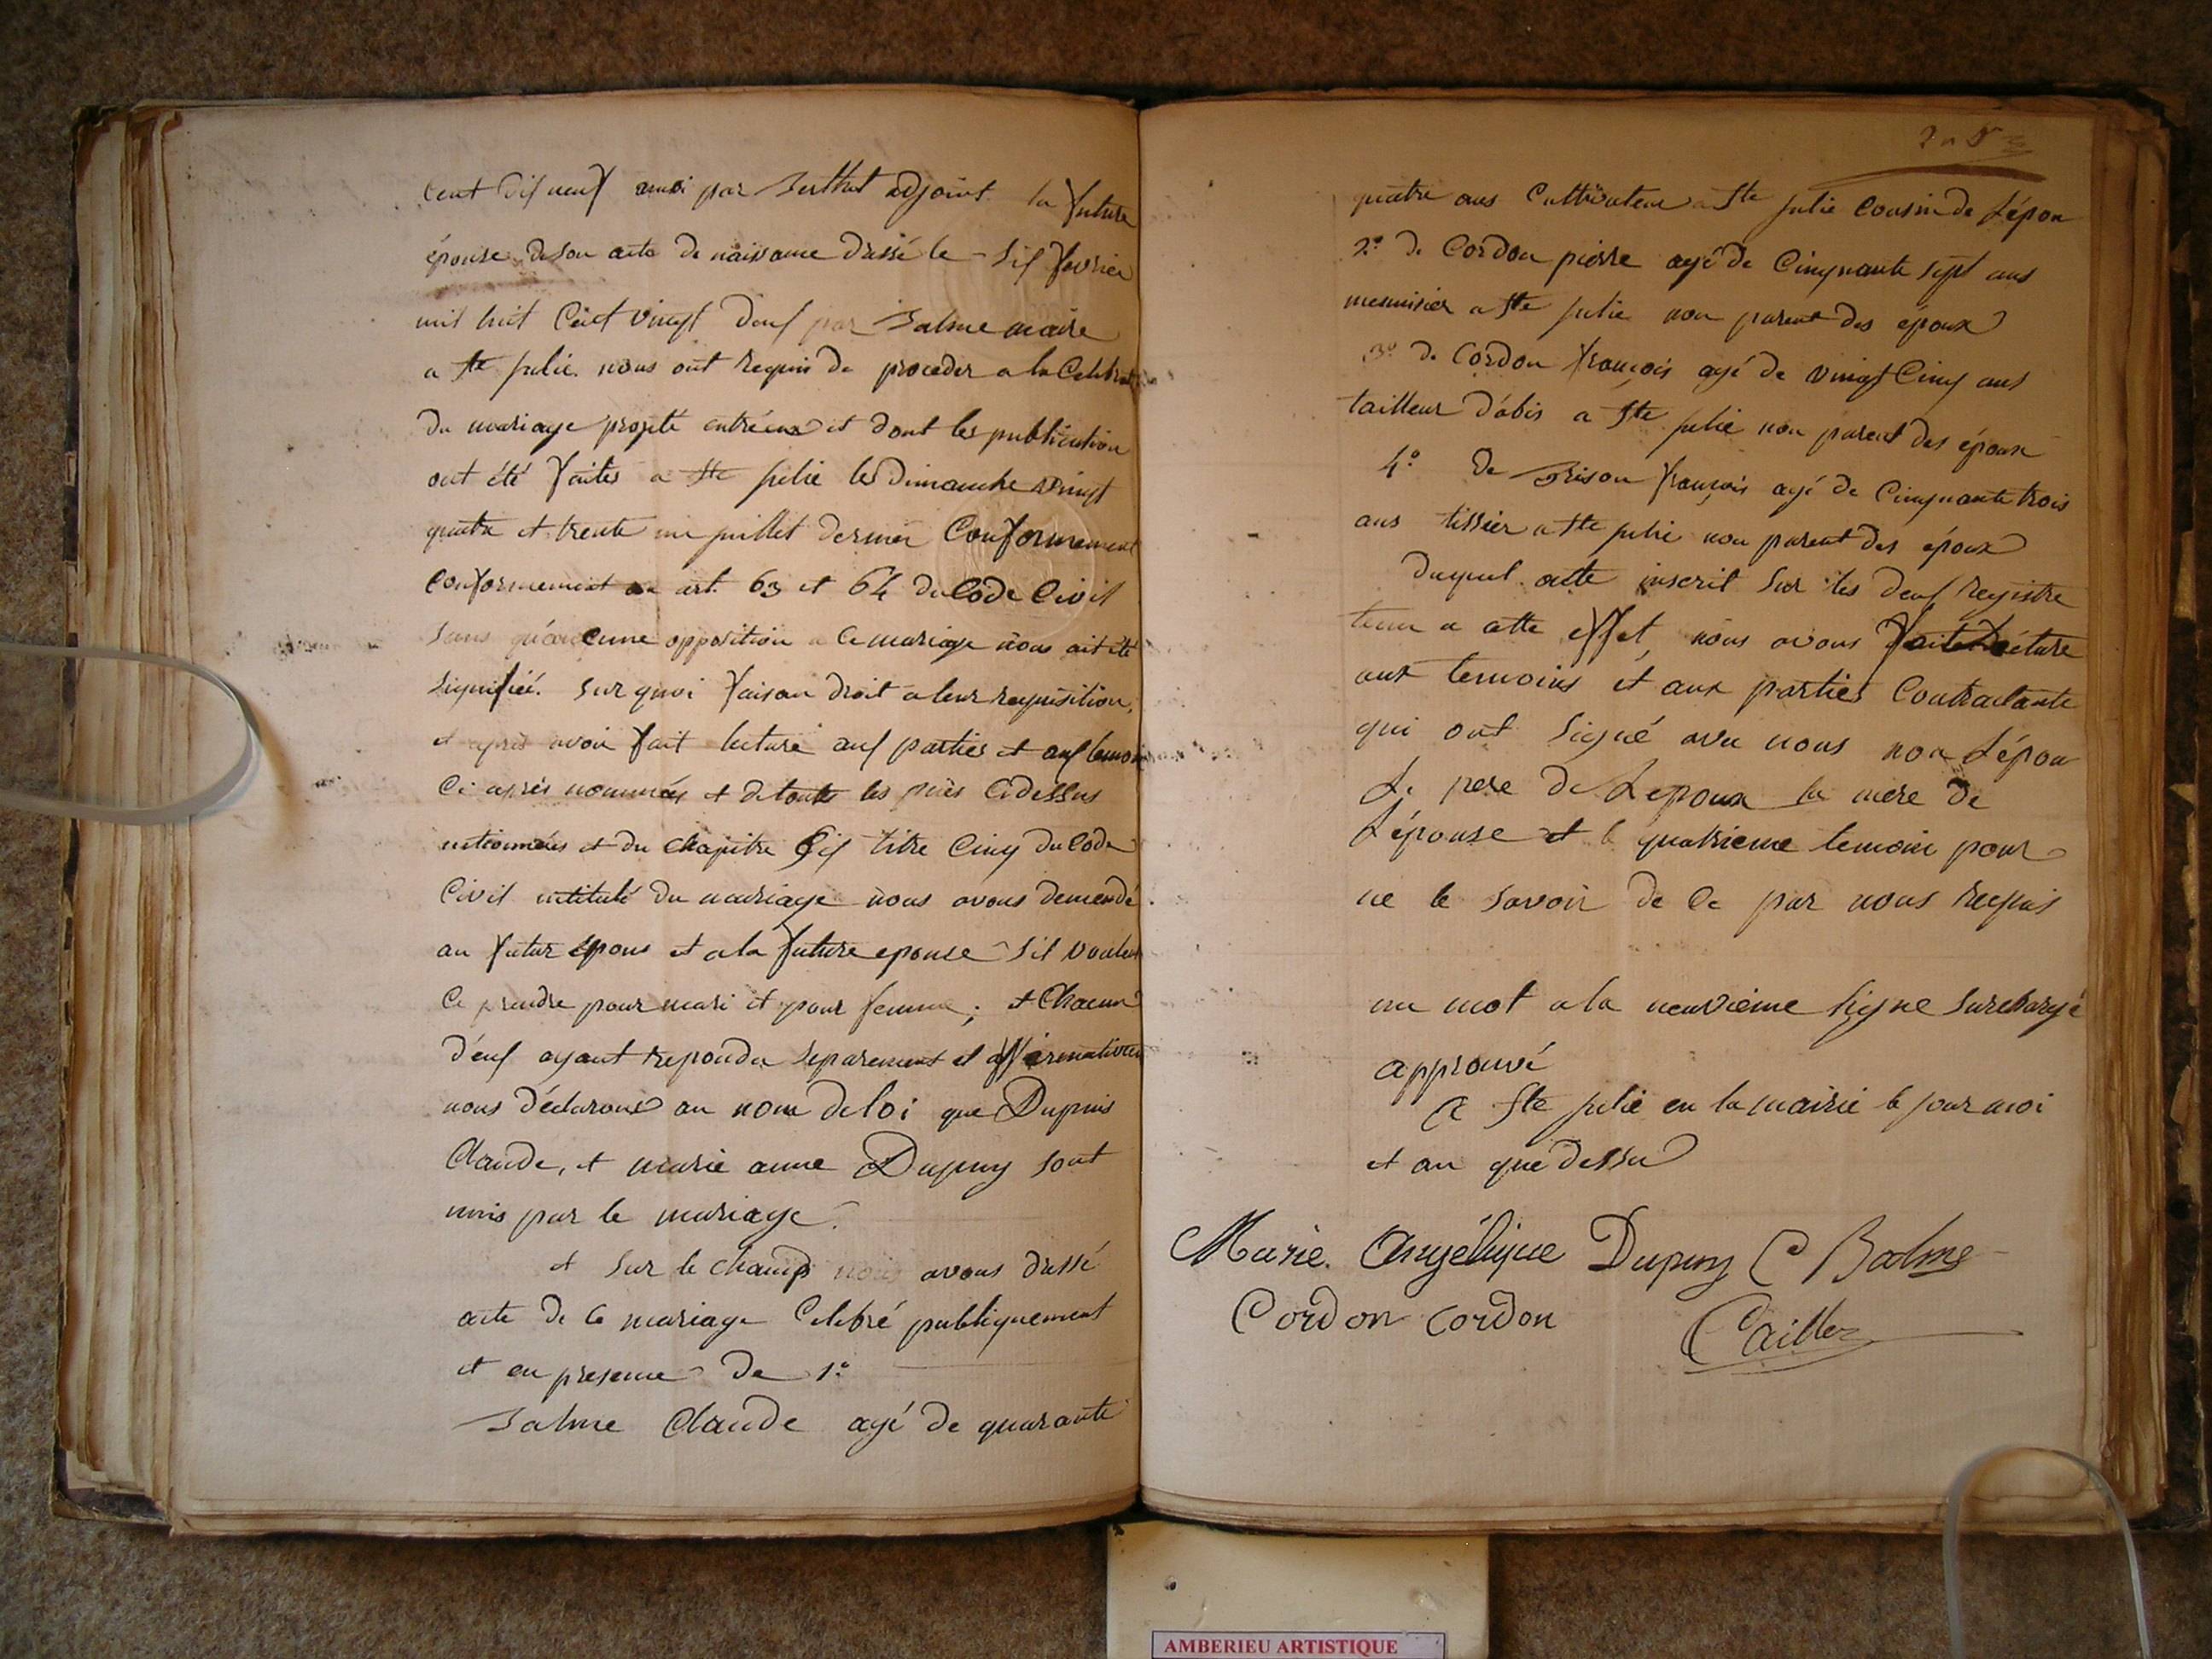 Cent dix neuf aussi par Berthet adjoint la future
épouse de son acte de naissance dressé le six fevrier
mil huit Cent vingt deux par Balme maire
a Ste julie. nous ont requis de proceder a la Celebrat
du mariage projeté entréeux et dont les publication
ont été faites a Ste julie les Dimanche vingt
quatre et trente un juillet dernier Conformement
Conformement au art. 63 et 64 du Code Civil
Sans qu'aucune opposition a Ce mariage nous ait été
Signifiée. Sur quoi faisan droit a leur requisition,
et après avoir fait lecture aux parties et aux temoin
Ci après nommées et de toutes les pièes Cidessus
mtionnées et du Chapitre Six titre Cinq du Code
Civil intitulé du mariage nous avons demendé
au futur épous et a la future epouse S'il voulent
Ce prendre pour mari et pour femme; et Chacun
d'eux ayant repondu Separement et affirmativem
nous déclarons au nom de loi que Dupuis
Claude, et marie anne Dupuy sont
unis par le mariage.
et Sur le Champ nous avons dressé
acte de Ce mariage Celebré publiquement
et en presence de 1.°
Balme Claude agé de quarante
quatre ans Cultivateur a Ste julie Cousin de Lépou
2.° de Cordon pierre agé de Cinquante sept ans
menuisier a Ste julie non parent des époux
3.° de Cordon françois agé de vingt Cinq ans
tailleur d'abis a Ste julie non parent des époux
4.° de Brison françois agé de Cinquante trois
ans tissier a Ste julie non parent des époux
duquel acte inscrit Sur les deux registre
tenu a cette effet, nous avons fait Lecture
aux temoins et aux parties Contractante
qui ont Signé avec nous non Lépou
Le pere de Lepoux la mere de
Lépouse et le quatrieme temoin pour
ne le savoir de Ce par nous requis
un mot a la neuvième ligne Surchargé
approuvé
a Ste julie en la mairie le jour moi
et an que dessu
Marie Angélique Dupuy C Balme
Cordon Cordon Caillez
AMBERIEU ARTISTIQUE